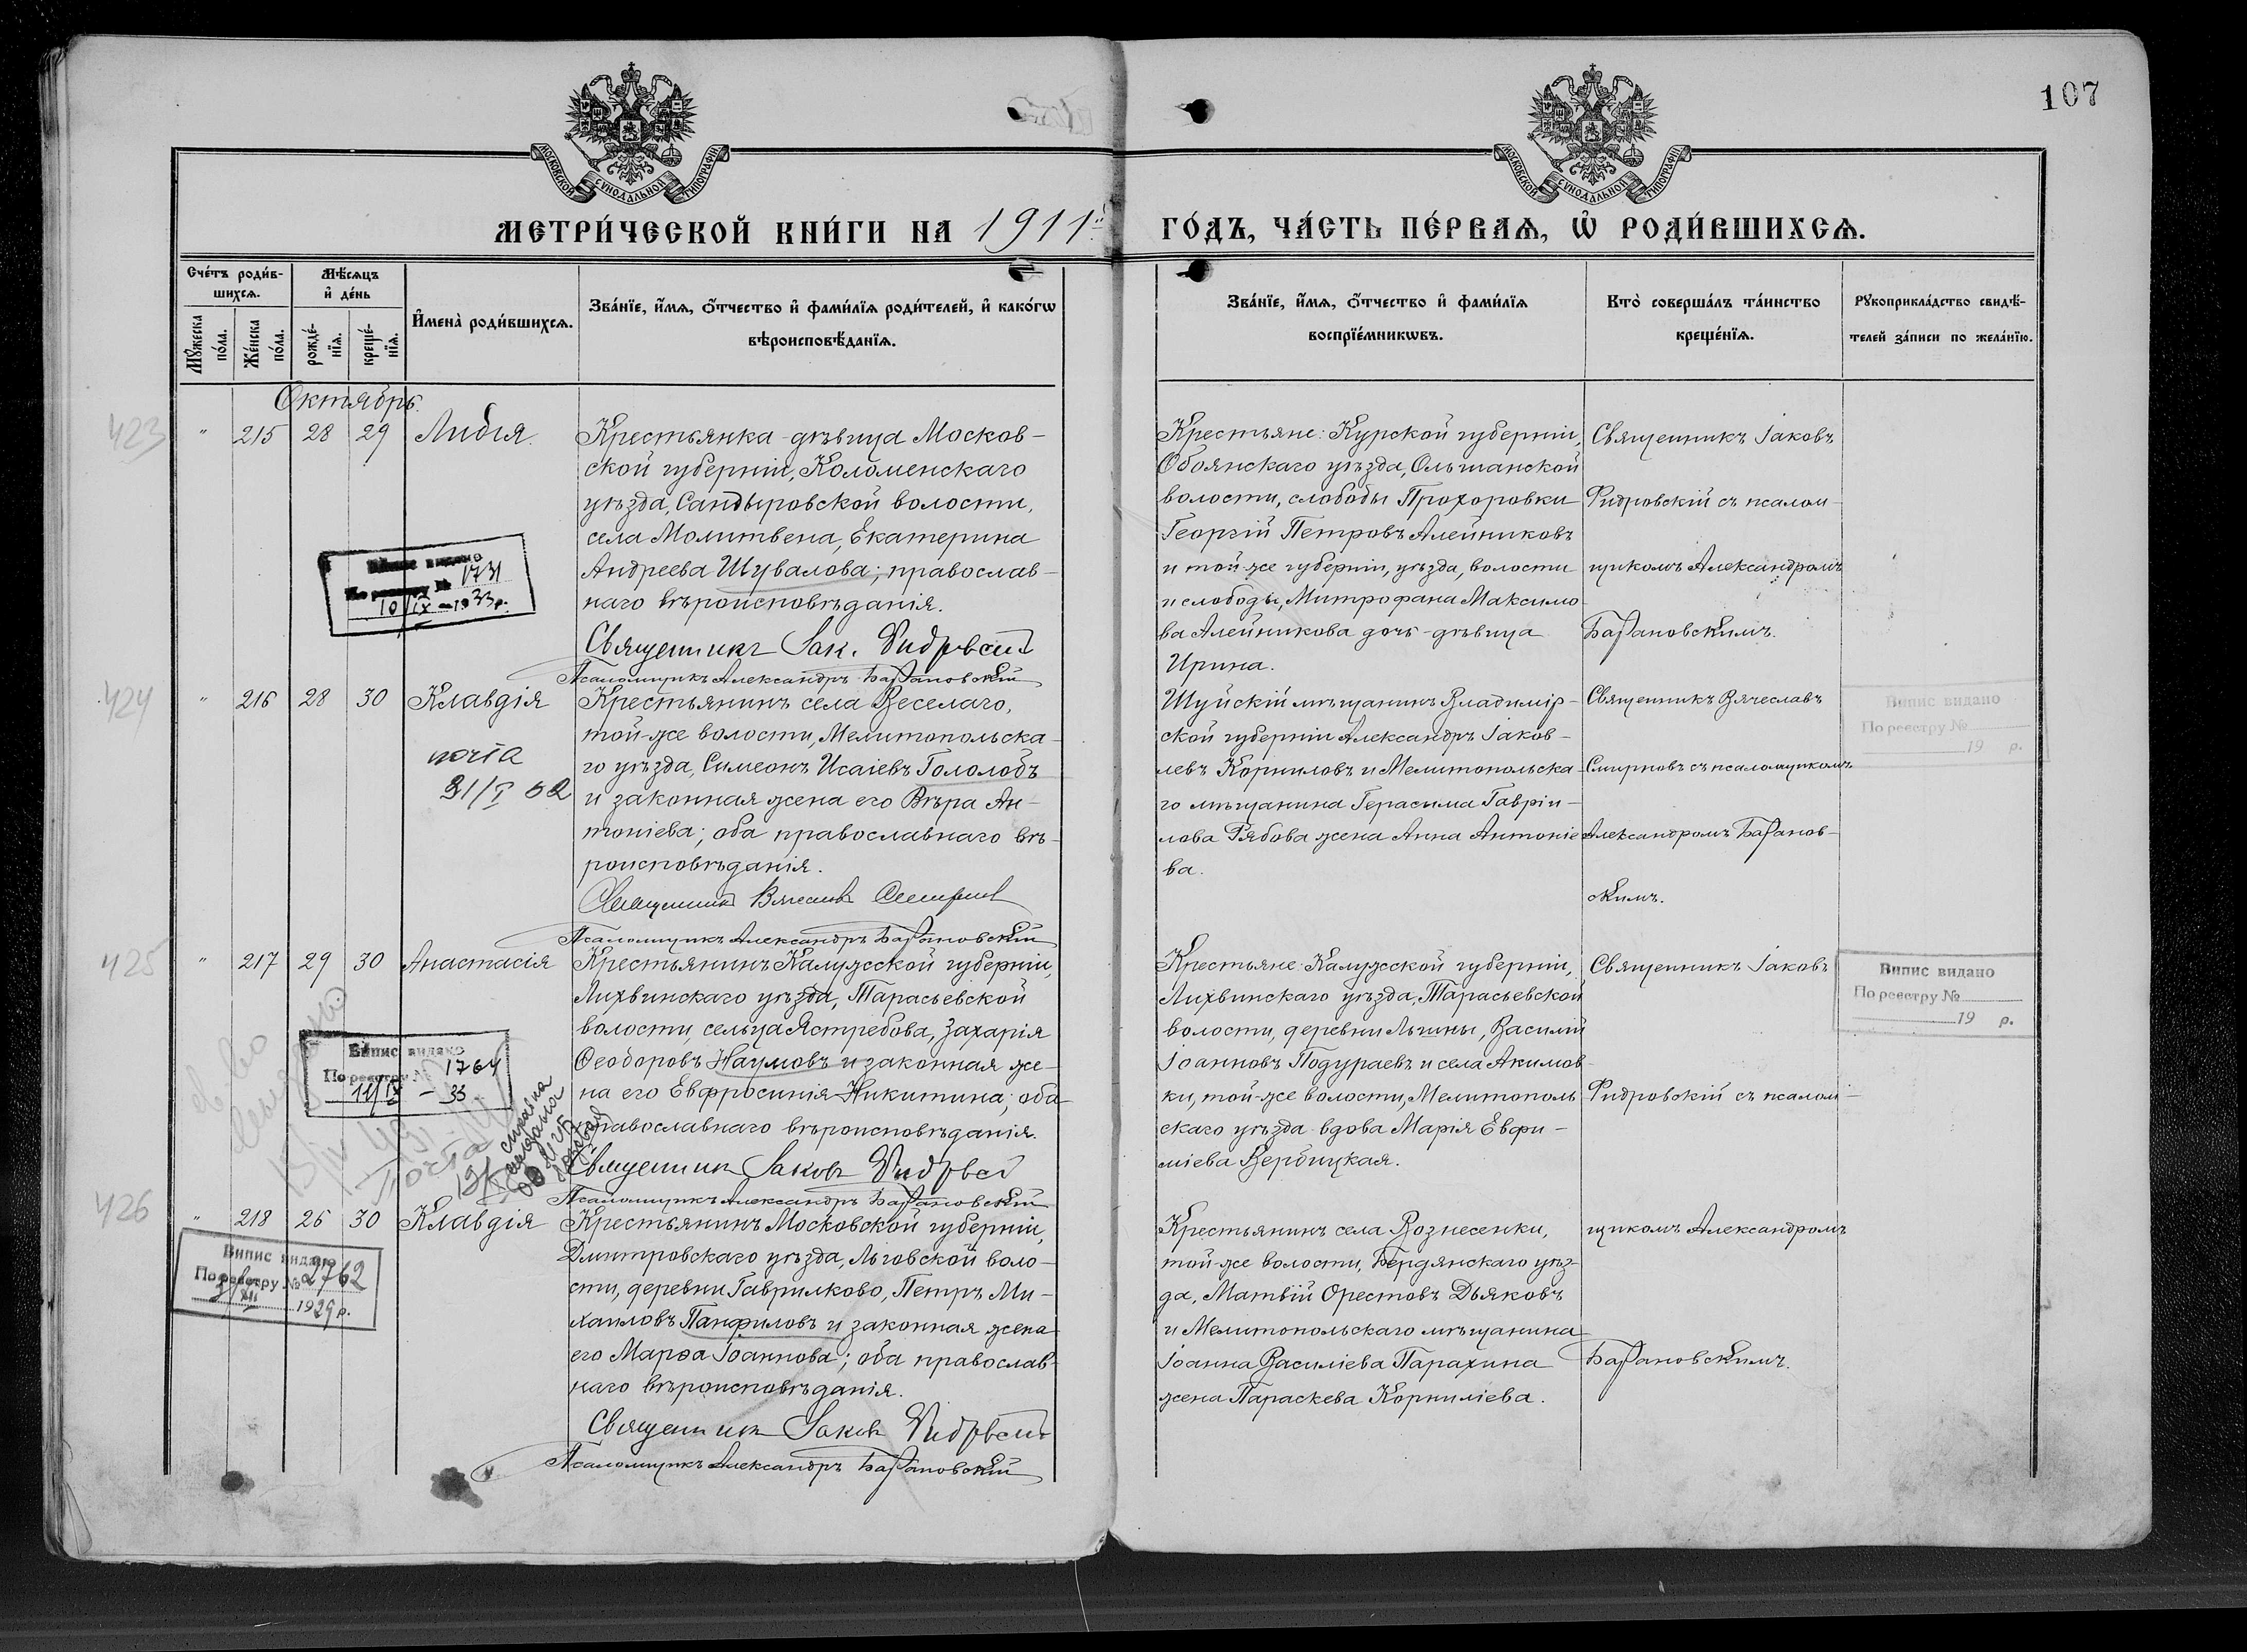 107
МОСКОВСКОЙ СѴНОДАЛЬНОЙ ТИПОГРАФІИ
МОСКОВСКОЙ СѴНОДАЛЬНОЙ ТИПОГРАФІИ
МЕТРИ́ЧЕСКОЙ КНИ́ГИ НА 1911й
ГО́ДЪ, ЧА́СТЬ ПЕ́РВАѦ, Ѽ РОДИ́ВШИХСѦ.
Сче́тъ роди́в-
шихсѧ.
Мѣ́сѧцъ
и҆ де́нь
Мꙋ́жеска
по́ла.
Же́нска
по́ла.
рожде́-
нїѧ.
креще́-
нїѧ.
И҆мена̀ роди́вшихсѧ.
Зва́нїе, и҆́мѧ, ѻ҆́тчество и҆ фами́лїѧ роди́телей, и҆ како́гѡ
вѣроисповѣ́данїѧ.
Зва́нїе, и҆́мѧ, ѻ҆́тчество и҆ фами́лїѧ
воспрїе́мникѡвъ.
Кто̀ соверша́лъ та́инство
креще́нїѧ.
Рꙋкоприкла́дство свидѣ́-
телей за́писи по жела́нїю.
Октябрь.
423
" 215 28 29 Лидія.
Крестьянка-дѣвица Москов-
ской губерніи, Коломенскаго
уѣзда, Сандыровской волости,
села Молитвена, Екатерина
Андреева Шувалова; православ-
наго вѣроисповѣданія.
Священникъ Іак.
Псаломщикъ Александръ Барановскій
Випис видано
По реестру № 1731
10/IX 1933 р.
Крестьяне: Курской губерніи,
Обоянскаго уѣзда, Ольшанской
волости, слободы Прохоровки
Георгій Петровъ Алейниковъ
и той-же губерніи, уѣзда, волости
и слободы, Митрофана Максимо-
ва Алейникова дочь-дѣвица
Ирина.
Священникъ Іаковъ
Фидровскій съ псалом-
щикомъ Александромъ
Барановскимъ.
424
" 216 28 30 Клавдія
почта
31/I 52
Крестьянинъ села Веселаго,
той-же волости, Мелитопольска-
го уѣзда, Симеонъ Исаіевъ Гололобъ
и законная жена его Вѣра Ан-
тоніева; оба православнаго вѣ-
роисповѣданія.
Священникъ Вячеславъ Смирновъ
Псаломщикъ Александръ Барановскій
Шуйскій мѣщанинъ Владимір-
ской губерніи Александръ Іаков-
левъ Корниловъ и Мелитопольска-
го мѣщанина Герасима Гавріи-
лова Рябова жена Анна Антоніе-
ва.
Священникъ Вячеславъ
Смирновъ съ псаломщикомъ
Александромъ Баранов-
скимъ.
Випис видано
По реестру №
19 р.
425
" 217 29 30 Анастасія
Крестьянинъ Калужской губерніи,
Лихвинскаго уѣзда, Тарасьевской
волости, сельца Ястребова, Захарія
Ѳеодоровъ Наумовъ и законная же-
на его Евфросинія Никитина; оба
православнаго вѣроисповѣданія.
Священникъ Іаковъ
Псаломщикъ Александръ Барановскій
Випис видано
По реестру № 1764
11/IX - 33
Крестьяне: Калужской губерніи,
Лихвинскаго уѣзда, Тарасьевской
волости, деревни Льгины, Василій
Іоанновъ Подураевъ и села Акимов-
ки, той-же волости, Мелитополь-
скаго уѣзда вдова Марія Евфи-
міева Вербицкая.
Священникъ Іаковъ
Фидровскій съ псалом-
Випис видано
По реестру №
19 р.
426
" 218 26 30 Клавдія
Крестьянинъ Московской губерніи,
Дмитровскаго уѣзда, Льговской воло-
сти, деревни Гаврилково, Петръ Ми-
хаиловъ Панфиловъ и законная жена
его Марѳа Іоаннова; оба православ-
наго вѣроисповѣданія.
Священникъ Іаковъ
Псаломщикъ Александръ Барановскій
Випис видано
По реестру № 2762
XII 1929 р.
Крестьянинъ села Вознесенки,
той-же волости, Бердянскаго уѣз-
да, Матвій Орестовъ Дьяковъ
и Мелитопольскаго мѣщанина
Іоанна Василіева Парахина
жена Параскева Корниліева.
щикомъ Александромъ
Барановскимъ.